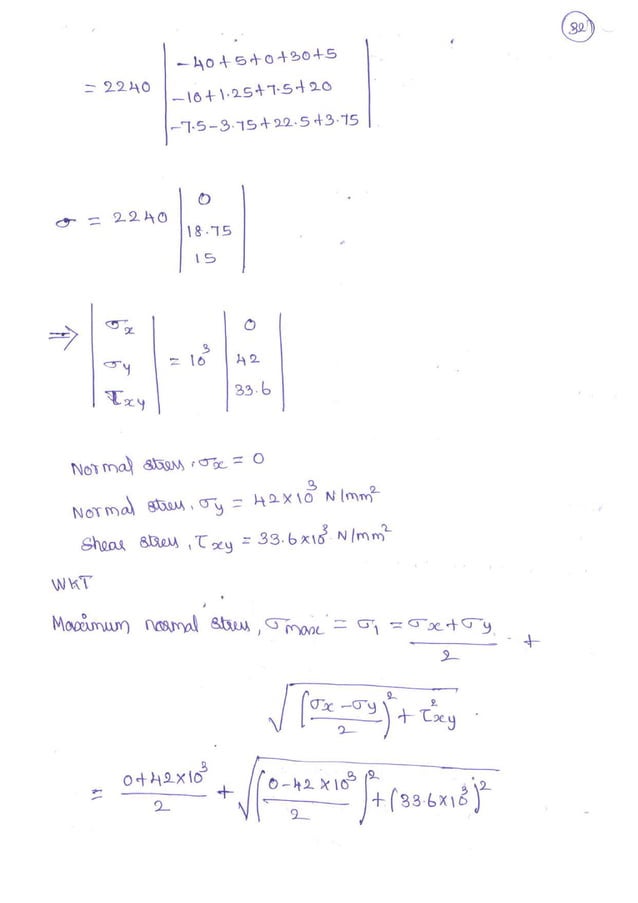 32
= 2240 | -40+5+0+30+5 |
| -10+1.25+7.5+20 |
| -7.5-3.75+22.5+3.75 |
σ = 2240 | 0 |
| 18.75 |
| 15 |
⇒ | σx | = 10³ | 0 |
| σy | | 42 |
| τxy | | 33.6 |
Normal stress, σx = 0
Normal stress, σy = 42×10³ N/mm²
Shear stress, τxy = 33.6×10³ N/mm²
WKT
Maximum normal stress, σmax = σ1 = (σx+σy)/2 +
√((σx-σy)/2)² + τ²xy
= (0+42×10³)/2 + √((0-42×10³)/2)² + (33.6×10³)²